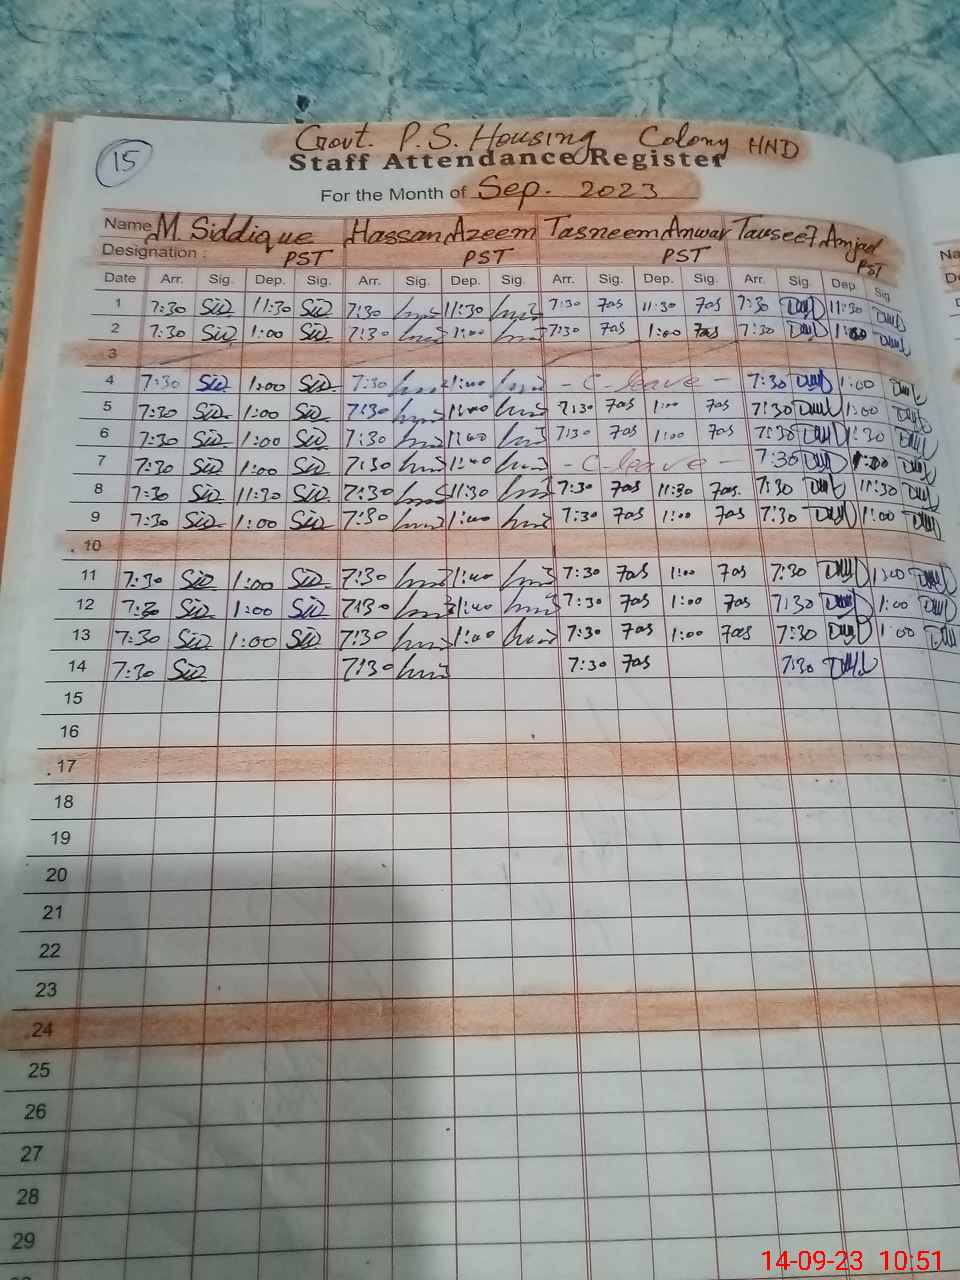 15
Govt. P.S. Housing Colony HND
Staff Attendance Register
For the Month of Sep. 2023
Name M. Siddique Hassan Azeem Tasneem Anwar Tauseef Amjad Na
Designation : PST PST PST PST De
Date Arr. Sig. Dep. Sig. Arr. Sig. Dep. Sig. Arr. Sig. Dep. Sig. Arr. Sig. Dep. Sig.
1 7:30 Sid 11:30 Sid 7:30 11:30 7:30 Tas 11:30 Tas 7:30 11:30
2 7:30 Sid 1:00 Sid 7:30 1:00 7:30 Tas 1:00 Tas 7:30
3
4 7:30 Sid 1:00 Sid 7:30 1:00 - C-leave - 7:30 1:00
5 7:30 Sid 1:00 Sid 7:30 1:00 7:30 Tas 1:00 Tas 7:30 1:00
6 7:30 Sid 1:00 Sid 7:30 1:00 7:30 Tas 1:00 Tas 7:30
7 7:30 Sid 1:00 Sid 7:30 1:00 - C-leave - 7:30 1:00
8 7:30 Sid 11:30 Sid 7:30 11:30 7:30 Tas 11:30 Tas. 7:30 11:30
9 7:30 Sid 1:00 Sid 7:30 1:00 7:30 Tas 1:00 Tas 7:30 1:00
10
11 7:30 Sid 1:00 Sid 7:30 1:00 7:30 Tas 1:00 Tas 7:30 1:00
12 7:30 Sid 1:00 Sid 7:30 1:00 7:30 Tas 1:00 Tas 7:30 1:00
13 7:30 Sid 1:00 Sid 7:30 1:00 7:30 Tas 1:00 Tas 7:30 1:00
14 7:30 Sid 7:30 7:30 Tas 7:30
15
16
17
18
19
20
21
22
23
24
25
26
27
28
29
14-09-23 10:51